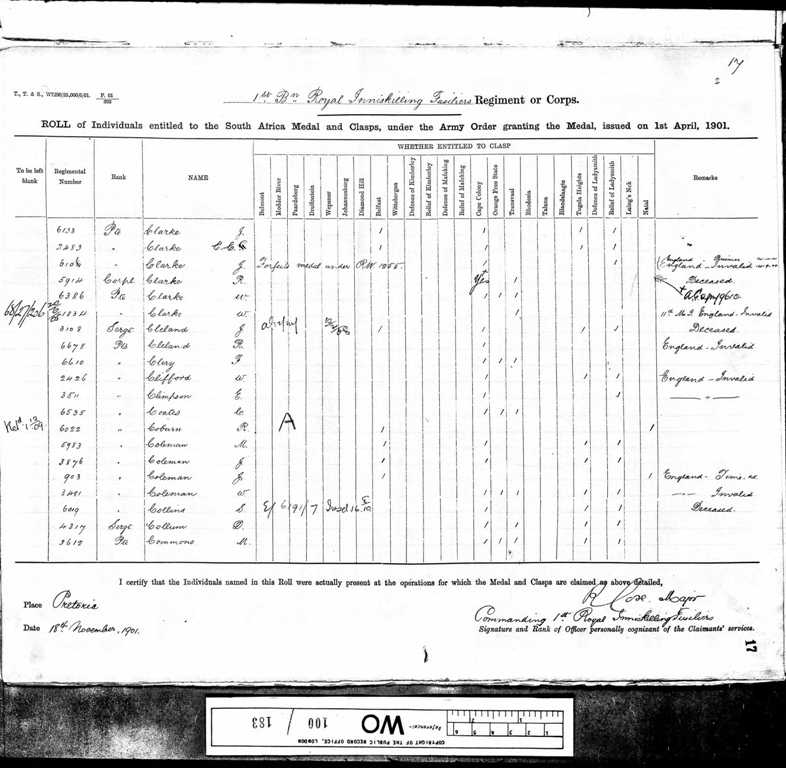 17
2
T., T. & S., W7298/25,000/6/01. F. 65
1st Bn Royal Inniskilling Fusiliers Regiment or Corps.
ROLL of Individuals entitled to the South Africa Medal and Clasps, under the Army Order granting the Medal, issued on 1st April, 1901.
WHETHER ENTITLED TO CLASP
To be left blank Regimental Number Rank NAME Belmont Modder River Paardeberg Driefontein Wepener Johannesburg Diamond Hill Belfast Wittebergen Defence of Kimberley Relief of Kimberley Defence of Mafeking Relief of Mafeking Cape Colony Orange Free State Transvaal Rhodesia Talana Elandslaagte Tugela Heights Defence of Ladysmith Relief of Ladysmith Laing's Nek Natal Remarks
6133 Pte Clarke J. / / / /
2483 " Clarke C.C. / / / / "
" Clarke J. Forfeits medal under R.W. / / England - Invalid
5914 Corpl Clarke R. Yes / Deceased.
6386 Pte Clarke W. / / /
" Clarke W. / 11th M.I. England - Invalid
3108 Sergt Cleland J / / / / Deceased.
6678 Pte Cleland R. / England - Invalid
6610 " Clery F / / /
2426 " Clifford W. / / / England - Invalid
" Climpson E. / / "
6535 " Coates C. / / /
6022 " Coburn R. A / /
5983 " Coleman M. / / / /
3876 " Coleman J. / / / /
903 " Coleman J. / / England - Time ex
3481 " Coleman W / / / / / " Invalid
" Collins S. / / / Deceased.
4317 Sergt Collum D. / / / /
3612 Pte Commons M. / / / / /
I certify that the Individuals named in this Roll were actually present at the operations for which the Medal and Clasps are claimed as above detailed,
Place Pretoria
Major
Commanding 1st Royal Inniskilling Fusiliers
Date 18th November, 1901.
Signature and Rank of Officer personally cognizant of the Claimants' services.
17
Reference:-
WO 100 / 183
1 2 3 4 5 6
COPYRIGHT OF THE PUBLIC RECORD OFFICE, LONDON